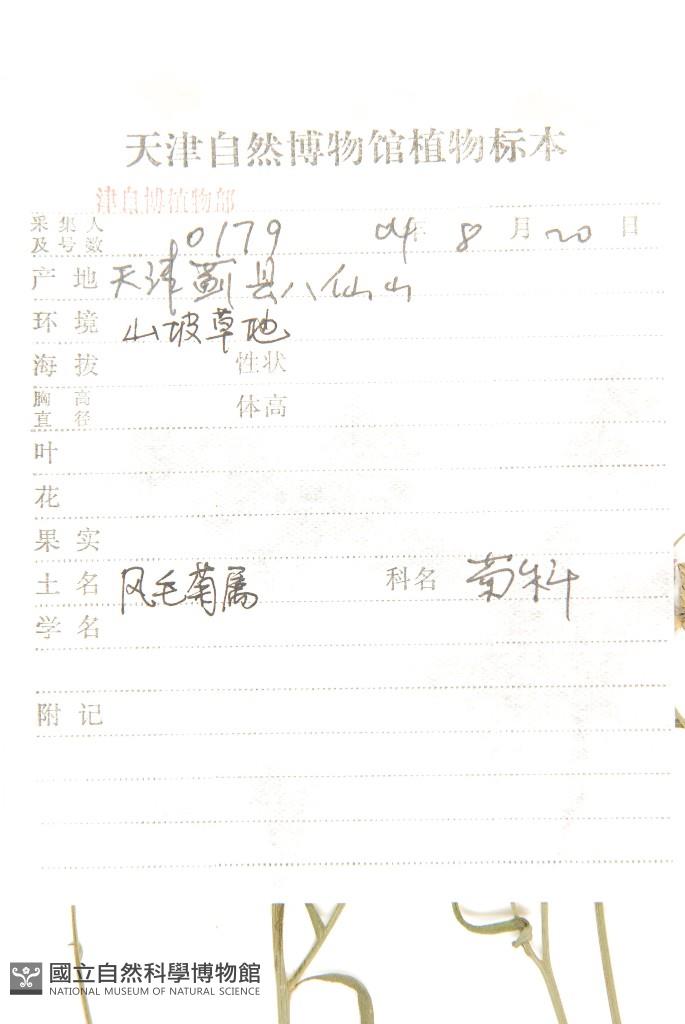 天津自然博物馆植物标本
津自博植物部
采集人及号数 0179 04年 8月20日
产地 天津蓟县八仙山
环境 山坡草地
海拔 性状
胸高直径 体高
叶
花
果实
土名 风毛菊属 科名 菊科
学名
附记
國立自然科學博物館
NATIONAL MUSEUM OF NATURAL SCIENCE